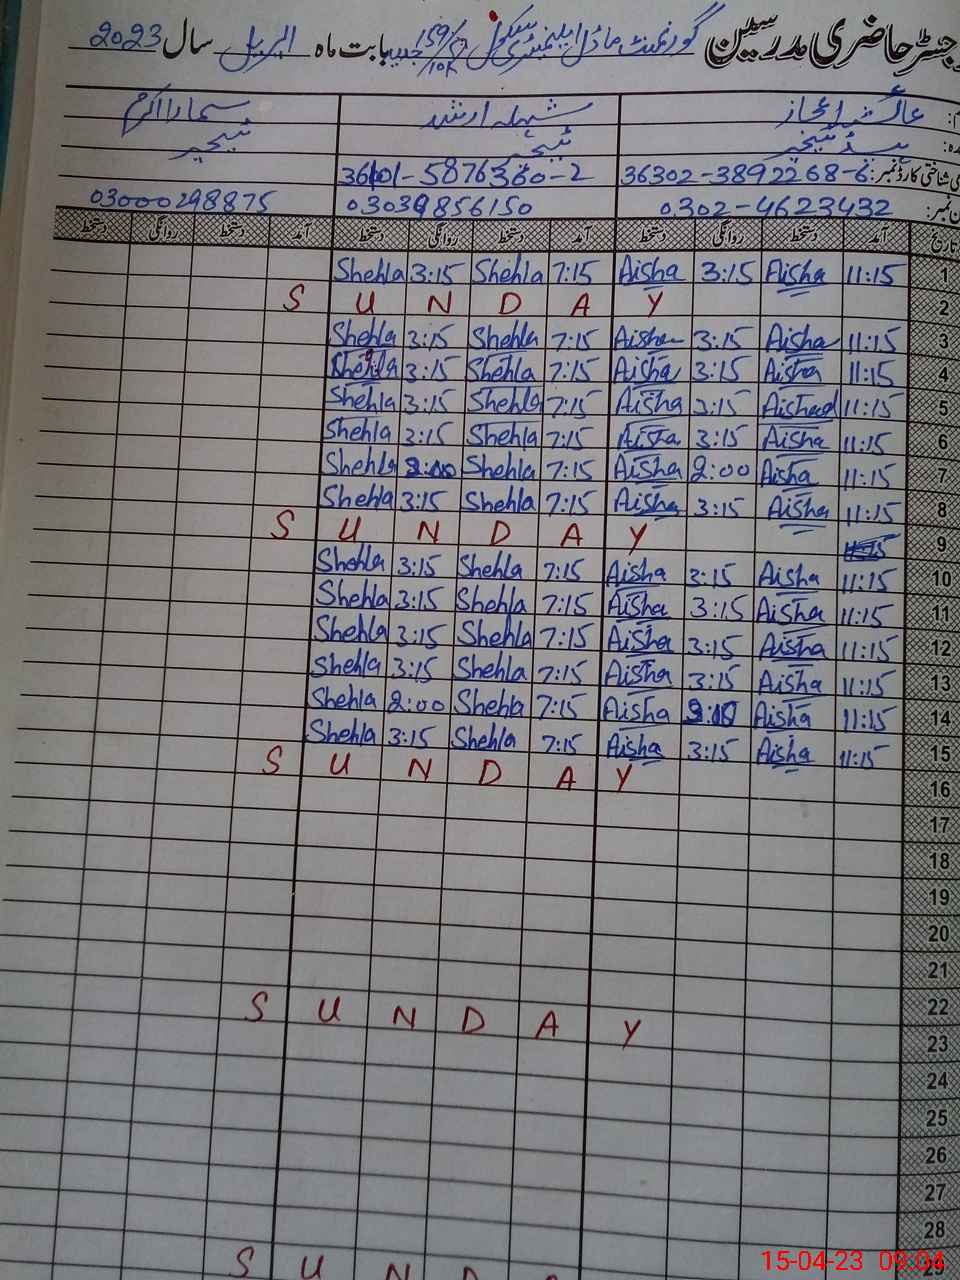 رجسٹر حاضری مدرسین گورنمنٹ ماڈل ایلیمنٹری سکول 159/10R بابت ماہ اپریل سال 2023
عائشہ اعجاز شہلہ ارشد سمارا اکرم
ہیڈ ٹیچر ٹیچر ٹیچر
شناختی کارڈ نمبر: 36302-3892268-6 36101-5876380-2
نمبر: 0302-4623432 03039856150 03000298875
تاریخ آمد دستخط روانگی دستخط آمد دستخط روانگی دستخط آمد دستخط روانگی دستخط
1 11:15 Aisha 3:15 Aisha 7:15 Shehla 3:15 Shehla
2 S U N D A Y
3 11:15 Aisha 3:15 Aisha 7:15 Shehla 3:15 Shehla
4 11:15 Aisha 3:15 Aisha 7:15 Shehla 3:15 Shehla
5 11:15 Aisha 3:15 Aisha 7:15 Shehla 3:15 Shehla
6 11:15 Aisha 3:15 Aisha 7:15 Shehla 3:15 Shehla
7 11:15 Aisha 2:00 Aisha 7:15 Shehla 2:00 Shehla
8 11:15 Aisha 3:15 Aisha 7:15 Shehla 3:15 Shehla
9 S U N D A Y
10 11:15 Aisha 3:15 Aisha 7:15 Shehla 3:15 Shehla
11 11:15 Aisha 3:15 Aisha 7:15 Shehla 3:15 Shehla
12 11:15 Aisha 3:15 Aisha 7:15 Shehla 3:15 Shehla
13 11:15 Aisha 3:15 Aisha 7:15 Shehla 3:15 Shehla
14 11:15 Aisha 2:00 Aisha 7:15 Shehla 2:00 Shehla
15 11:15 Aisha 3:15 Aisha 7:15 Shehla 3:15 Shehla
16 S U N D A Y
17
18
19
20
21
22
23 S U N D A Y
24
25
26
27
28
29 S U N D A
15-04-23 09:04